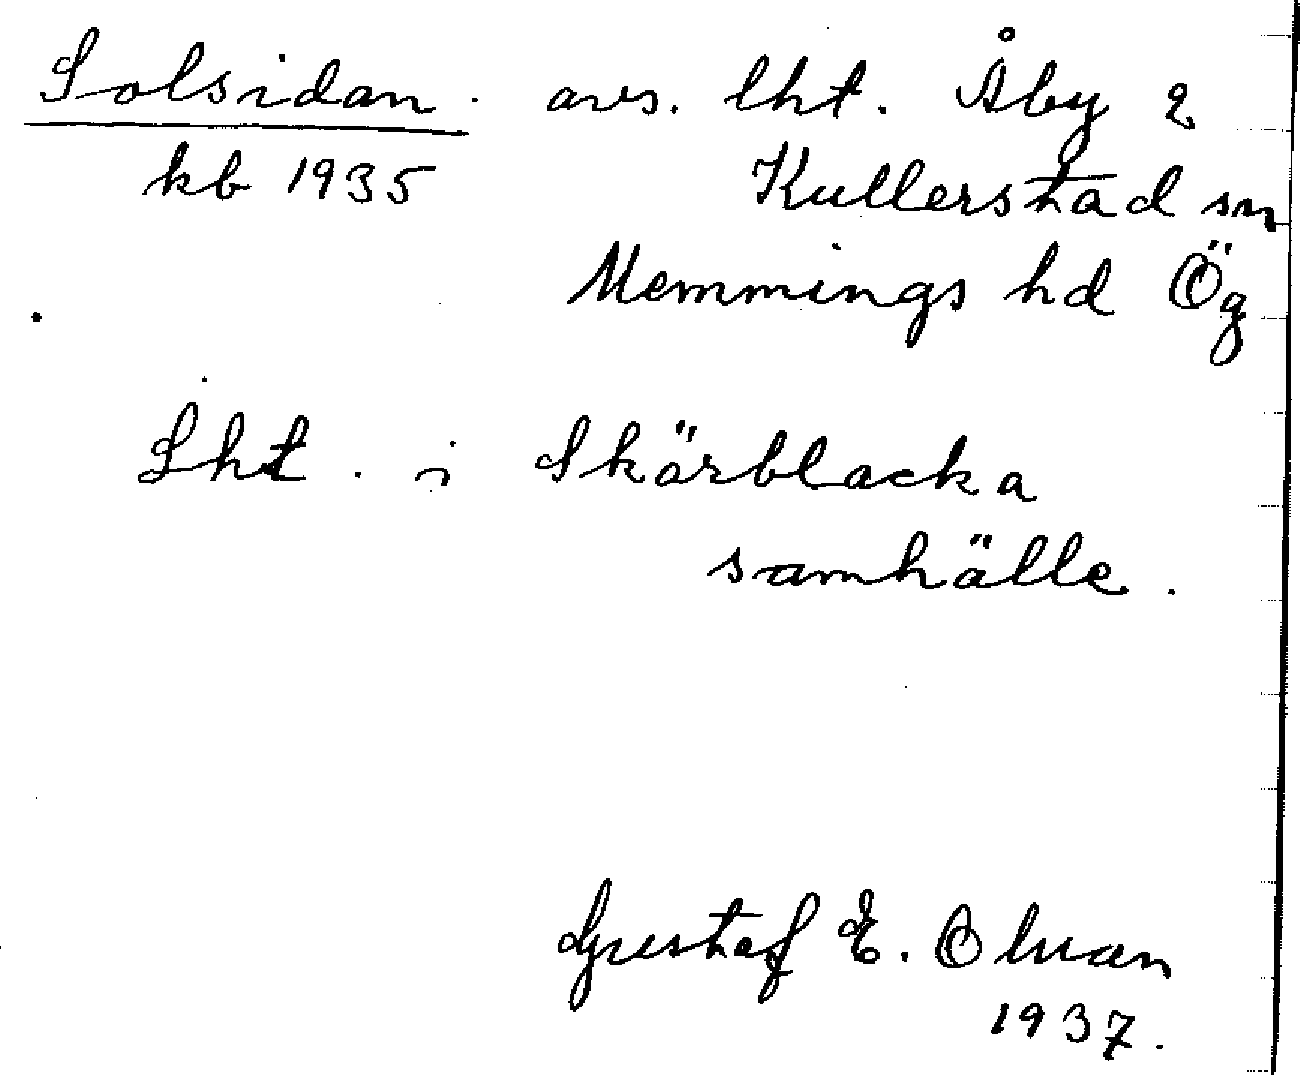 Solsidan. avs. lht. Åby 2
kb 1935 Kullerstad sn
Memmings hd Ög
Lht. i Skärblacka
samhälle.
Gustaf E.
1937.